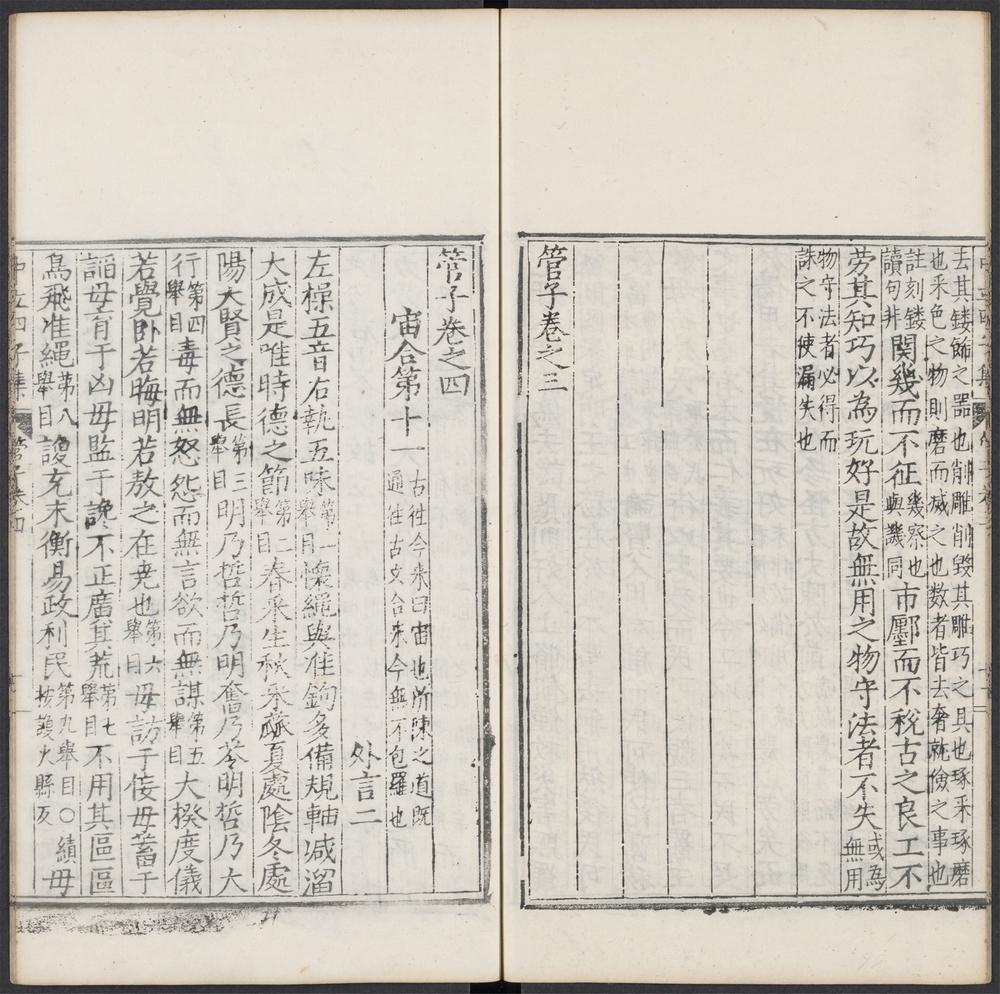 去其鏤飾之器也削雕削毀其雕巧之具也琢采琢磨
也采色之物則磨而滅之也数者皆去奢就儉之事也
註刻鏤讀句非
関幾而不征
幾察也與譏同
市鄽而不稅古之良工不
劳其知巧以為玩好是故無用之物守法者不失
或為無用
物守法者必得而
誅之不使漏失也
管子卷之三
管子卷之四
宙合第十一
古往今來曰宙也所陳之道既
通往古又合來今無不包羅也
外言二
左操五音右執五味
第一舉目
懷繩與准鉤多備規軸減溜
大成是唯時德之節
第二舉目
春采生秋采蓏夏處陰冬處
陽大賢之德長
第三舉目
明乃哲哲乃明奮乃苓明哲乃大
行
第四舉目
毒而無怒怨而無言欲而無謀
第五舉目
大揆度儀
若覺卧若晦明若敖之在尭也
第六舉目
毋訪于佞毋蓄于
謟毋育于凶毋監于讒不正廣其荒
第七舉目
不用其區區
鳥飛准繩
第八舉目
謢充末衡易政利民
第九舉目〇績
按謢火縣反
毋
中立四子集
管子卷四